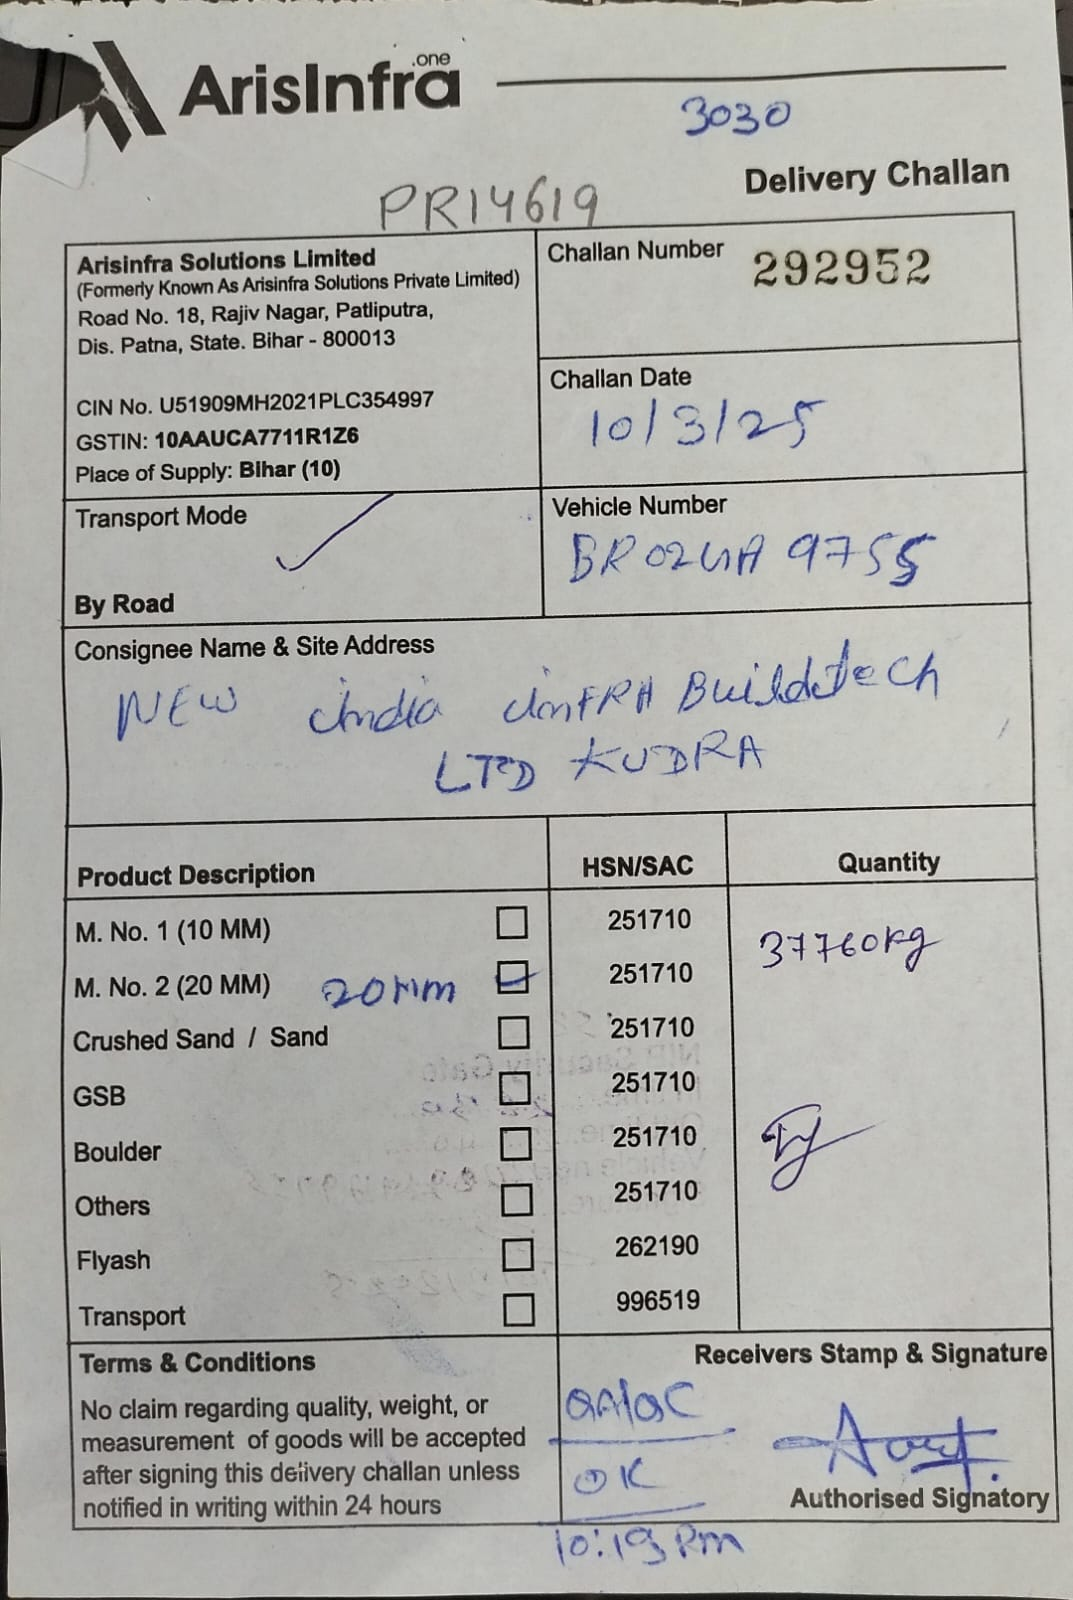 ArisInfra .one
3030
Delivery Challan
PR14619
Arisinfra Solutions Limited
(Formerly Known As Arisinfra Solutions Private Limited)
Road No. 18, Rajiv Nagar, Patliputra,
Dis. Patna, State. Bihar - 800013
CIN No. U51909MH2021PLC354997
GSTIN: 10AAUCA7711R1Z6
Place of Supply: Bihar (10)
Challan Number 292952
Challan Date
10/3/25
Transport Mode
By Road
Vehicle Number
BR02GA 9755
Consignee Name & Site Address
NEW india inFRA Buildtech
LTD KUDRA
Product Description HSN/SAC Quantity
M. No. 1 (10 MM) 251710 37760kg
M. No. 2 (20 MM) 20mm 251710
Crushed Sand / Sand 251710
GSB 251710
Boulder 251710
Others 251710
Flyash 262190
Transport 996519
Terms & Conditions
No claim regarding quality, weight, or
measurement of goods will be accepted
after signing this delivery challan unless
notified in writing within 24 hours
Receivers Stamp & Signature
QA/QC
OK
10:19 Pm
Authorised Signatory